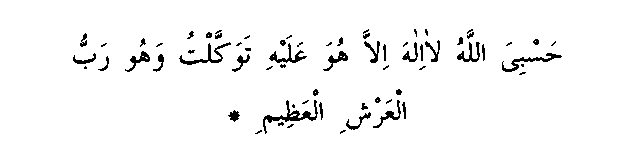 حَسْبِىَ اللَّهُ لاٰاِلٰهَ اِلاَّ هُوَ عَلَيْهِ تَوَكَّلْتُ وَهُو رَبُّ
الْعَرْشِ الْعَظِيمِ *